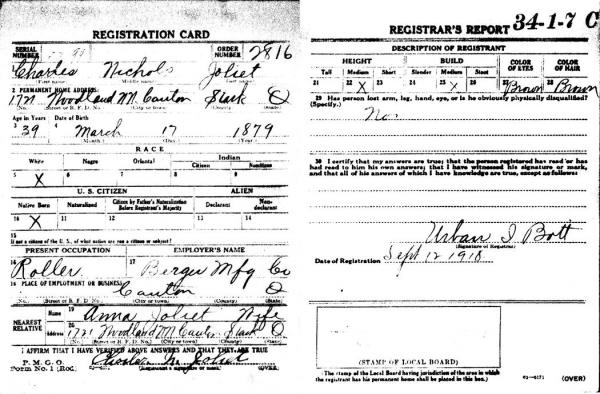 REGISTRATION CARD
SERIAL NUMBER
ORDER NUMBER 2816
1 Charles Nichols Joliet
First name Middle name Last name
2 PERMANENT HOME ADDRESS:
1721 Woodland M. Canton Stark O
(No.) (Street or R. F. D. No.) (City or town) (County) (State)
Age in Years Date of Birth
3 39 4 March 17 1879
(Month) (Day) (Year)
RACE
White Negro Oriental Indian
Citizen Noncitizen
5 X 6 7 8 9
U. S. CITIZEN ALIEN
Native Born Naturalized Citizen by Father's Naturalization Before Registrant's Majority Declarant Non-declarant
10 X 11 12 13 14
15
If not a citizen of the U. S., of what nation are you a citizen or subject?
PRESENT OCCUPATION EMPLOYER'S NAME
16 Roller 17 Berger Mfg Co
18 PLACE OF EMPLOYMENT OR BUSINESS:
Canton O
(No.) (Street or R. F. D. No.) (City or town) (County) (State)
NEAREST RELATIVE
Name 19 Anna Joliet Wife
Address 20 1721 Woodland M. Canton Stark O
(No.) (Street or R. F. D. No.) (City or town) (County) (State)
I AFFIRM THAT I HAVE VERIFIED ABOVE ANSWERS AND THAT THEY ARE TRUE
P. M. G. O.
Form No. 1 (Red) Charles N. Joliet
(Registrant's signature or mark) (OVER)
REGISTRAR'S REPORT 34-1-7 C
DESCRIPTION OF REGISTRANT
HEIGHT BUILD COLOR OF EYES COLOR OF HAIR
Tall Medium Short Slender Medium Stout
21 22 X 23 24 25 X 26 27 Brown 28 Brown
29 Has person lost arm, leg, hand, eye, or is he obviously physically disqualified?
(Specify.) No.
30 I certify that my answers are true; that the person registered has read or has had read to him his own answers; that I have witnessed his signature or mark, and that all of his answers of which I have knowledge are true, except as follows:
Urban I. Bott
(Signature of Registrar)
Date of Registration Sept 12 1918
(STAMP OF LOCAL BOARD)
(The stamp of the Local Board having jurisdiction of the area in which the registrant has his permanent home shall be placed in this box.)
03-6171 (OVER)